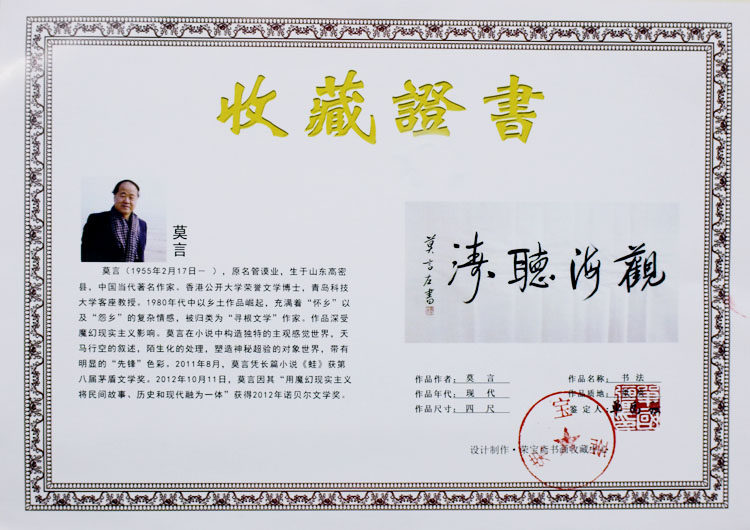 收藏證書
莫言
莫言（1955年2月17日－ ），原名管谟业，生于山东高密
县，中国当代著名作家。香港公开大学荣誉文学博士，青岛科技
大学客座教授。1980年代中以乡土作品崛起，充满着“怀乡”以
及“怨乡”的复杂情感，被归类为“寻根文学”作家。作品深受
魔幻现实主义影响。莫言在小说中构造独特的主观感觉世界，天
马行空的叙述，陌生化的处理，塑造神秘超验的对象世界，带有
明显的“先锋”色彩。2011年8月，莫言凭长篇小说《蛙》获第
八届茅盾文学奖。2012年10月11日，莫言因其“用魔幻现实主义
将民间故事、历史和现代融为一体”获得2012年诺贝尔文学奖。
觀海聽濤
莫言左書
作品作者：莫 言
作品名称：书 法
作品年代：现 代
作品质地：
作品尺寸：四 尺
鉴定人：
设计制作·荣宝斋书画收藏中心